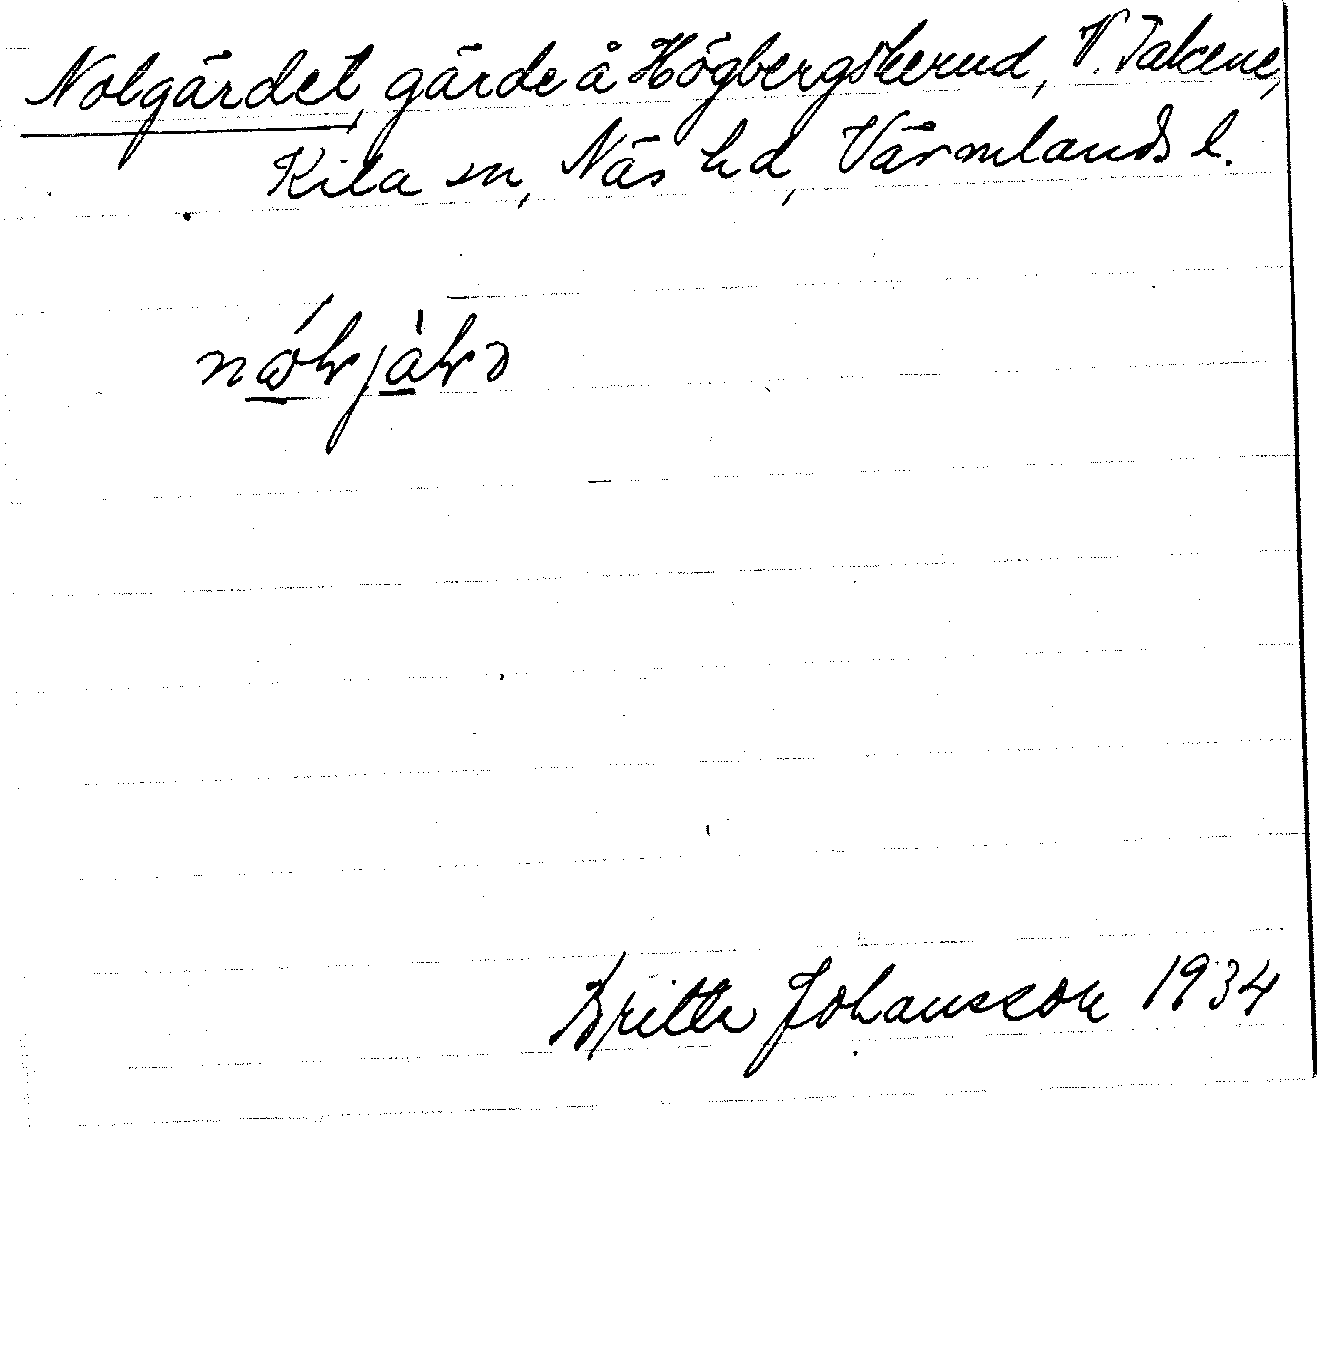 Nolgärdet, gärde å Högbergskerud, V. Takene,
Kila sn, Näs hd, Värmlands l.
Britta Johansson 1934